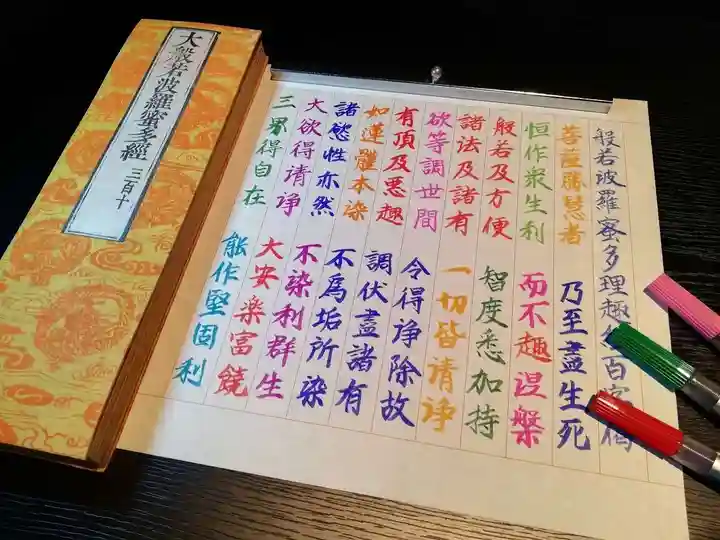 大般若波羅蜜多經 三百十
般若波羅蜜多理趣百字偈
菩薩勝慧者 乃至盡生死
恒作衆生利 而不趣涅槃
般若及方便 智度悉加持
諸法及諸有 一切皆清浄
欲等調世間 令得浄除故
有頂及悪趣 調伏盡諸有
如蓮體本染 不爲垢所染
諸慾性亦然 不染利群生
大欲得清浄 大安楽富饒
三界得自在 能作堅固利